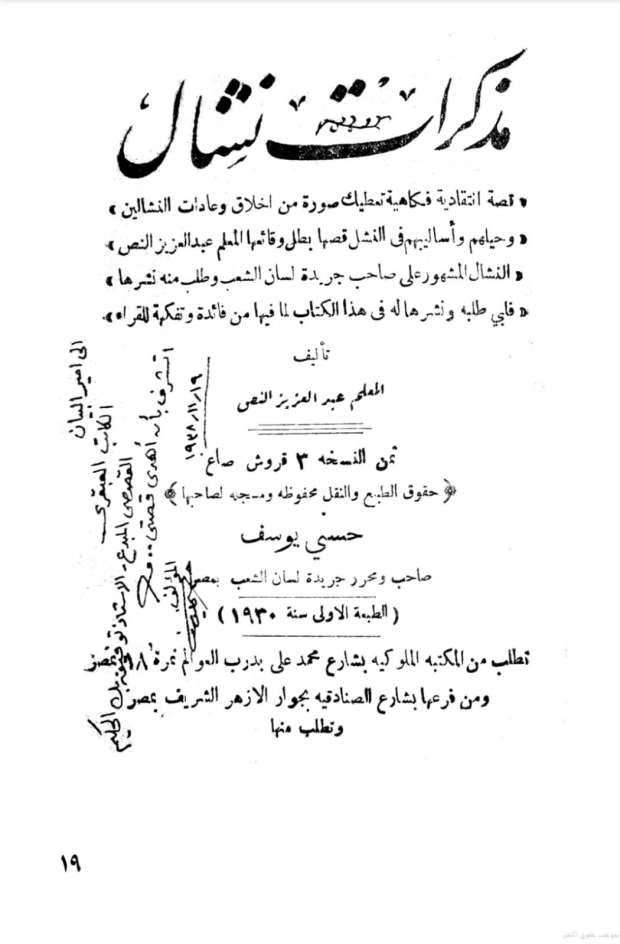 مذكرات نشال
« قصة انتقادية فكاهية تعطيك صورة من اخلاق وعادات النشالين »
« وحيلهم وأساليبهم فى النشل قصها بطل وقائعها المعلم عبدالعزيز النص »
« النشال المشهور على صاحب جريدة لسان الشعب وطلب منه نشرها »
« فلبي طلبه ونشرها له فى هذا الكتاب لما فيها من فائدة وتفكهة للقراء ».
تأليف
المعلم عبد العزيز النص
ثمن النسخه ٣ قروش صاغ
﴿ حقوق الطبع والنقل محفوظه ومسجله لصاحبها ﴾
حسني يوسف
صاحب ومحرر جريدة لسان الشعب بمصر
( الطبعة الاولى سنة ١٩٣٠ )
تطلب من المكتبه الملوكيه بشارع محمد على بدرب العوالم نمرة ٩٨ بمصر
ومن فرعها بشارع الصنادقيه بجوار الازهر الشريف بمصر
وتطلب منها
الى امير البيان
الكاتب العبقرى
القصصى المبدع - الاستاذ توفيق بك الحكيم
اتشرف بأن أهدى قصتى..
المؤلف
١٩٣٨/١١/١٩
١٩